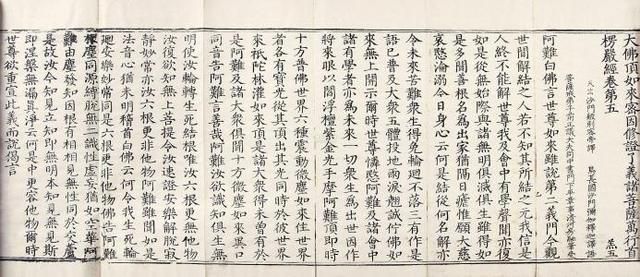 大佛頂如來密因修證了義諸菩薩萬行首
楞嚴經卷第五 羔五
天竺沙門般剌蜜帝譯 烏萇國沙門彌伽釋迦譯語
菩薩戒弟子前正議大夫同中書門下平章事清河房融筆受
阿難白佛言世尊如來雖說第二義門今觀
世間解結之人若不知其所結之元我信是
人終不能解世尊我及會中有學聲聞亦復
如是從無始際與諸無明俱滅俱生雖得如
是多聞善根名為出家猶隔日瘧惟願大慈
哀愍淪溺今日身心云何是結從何名解亦
令未來苦難眾生得免輪迴不落三有作是
語已普及大眾五體投地雨淚翹誠佇佛如
來無上開示爾時世尊憐愍阿難及諸會中
諸有學者亦為未來一切眾生為出世因作
將來眼以閻浮檀紫光金手摩阿難頂即時
十方普佛世界六種震動微塵如來住世界
者各有寶光從其頂出其光同時於彼世界
來祇陀林灌如來頂是諸大眾得未曾有於
是阿難及諸大眾俱聞十方微塵如來異口
同音告阿難言善哉阿難汝欲識知俱生無
明使汝輪轉生死結根唯汝六根更無他物
汝復欲知無上菩提令汝速證安樂解脫寂
靜妙常亦汝六根更非他物阿難雖聞如是
法音心猶未明稽首白佛云何令我生死輪
迴安樂妙常同是六根更非他物佛告阿難
根塵同源縛脫無二識性虛妄猶如空華阿
難由塵發知因根有相相見無性同於交蘆
是故汝今知見立知即無明本知見無見斯
即涅槃無漏真淨云何是中更容他物爾時
世尊欲重宣此義而說偈言